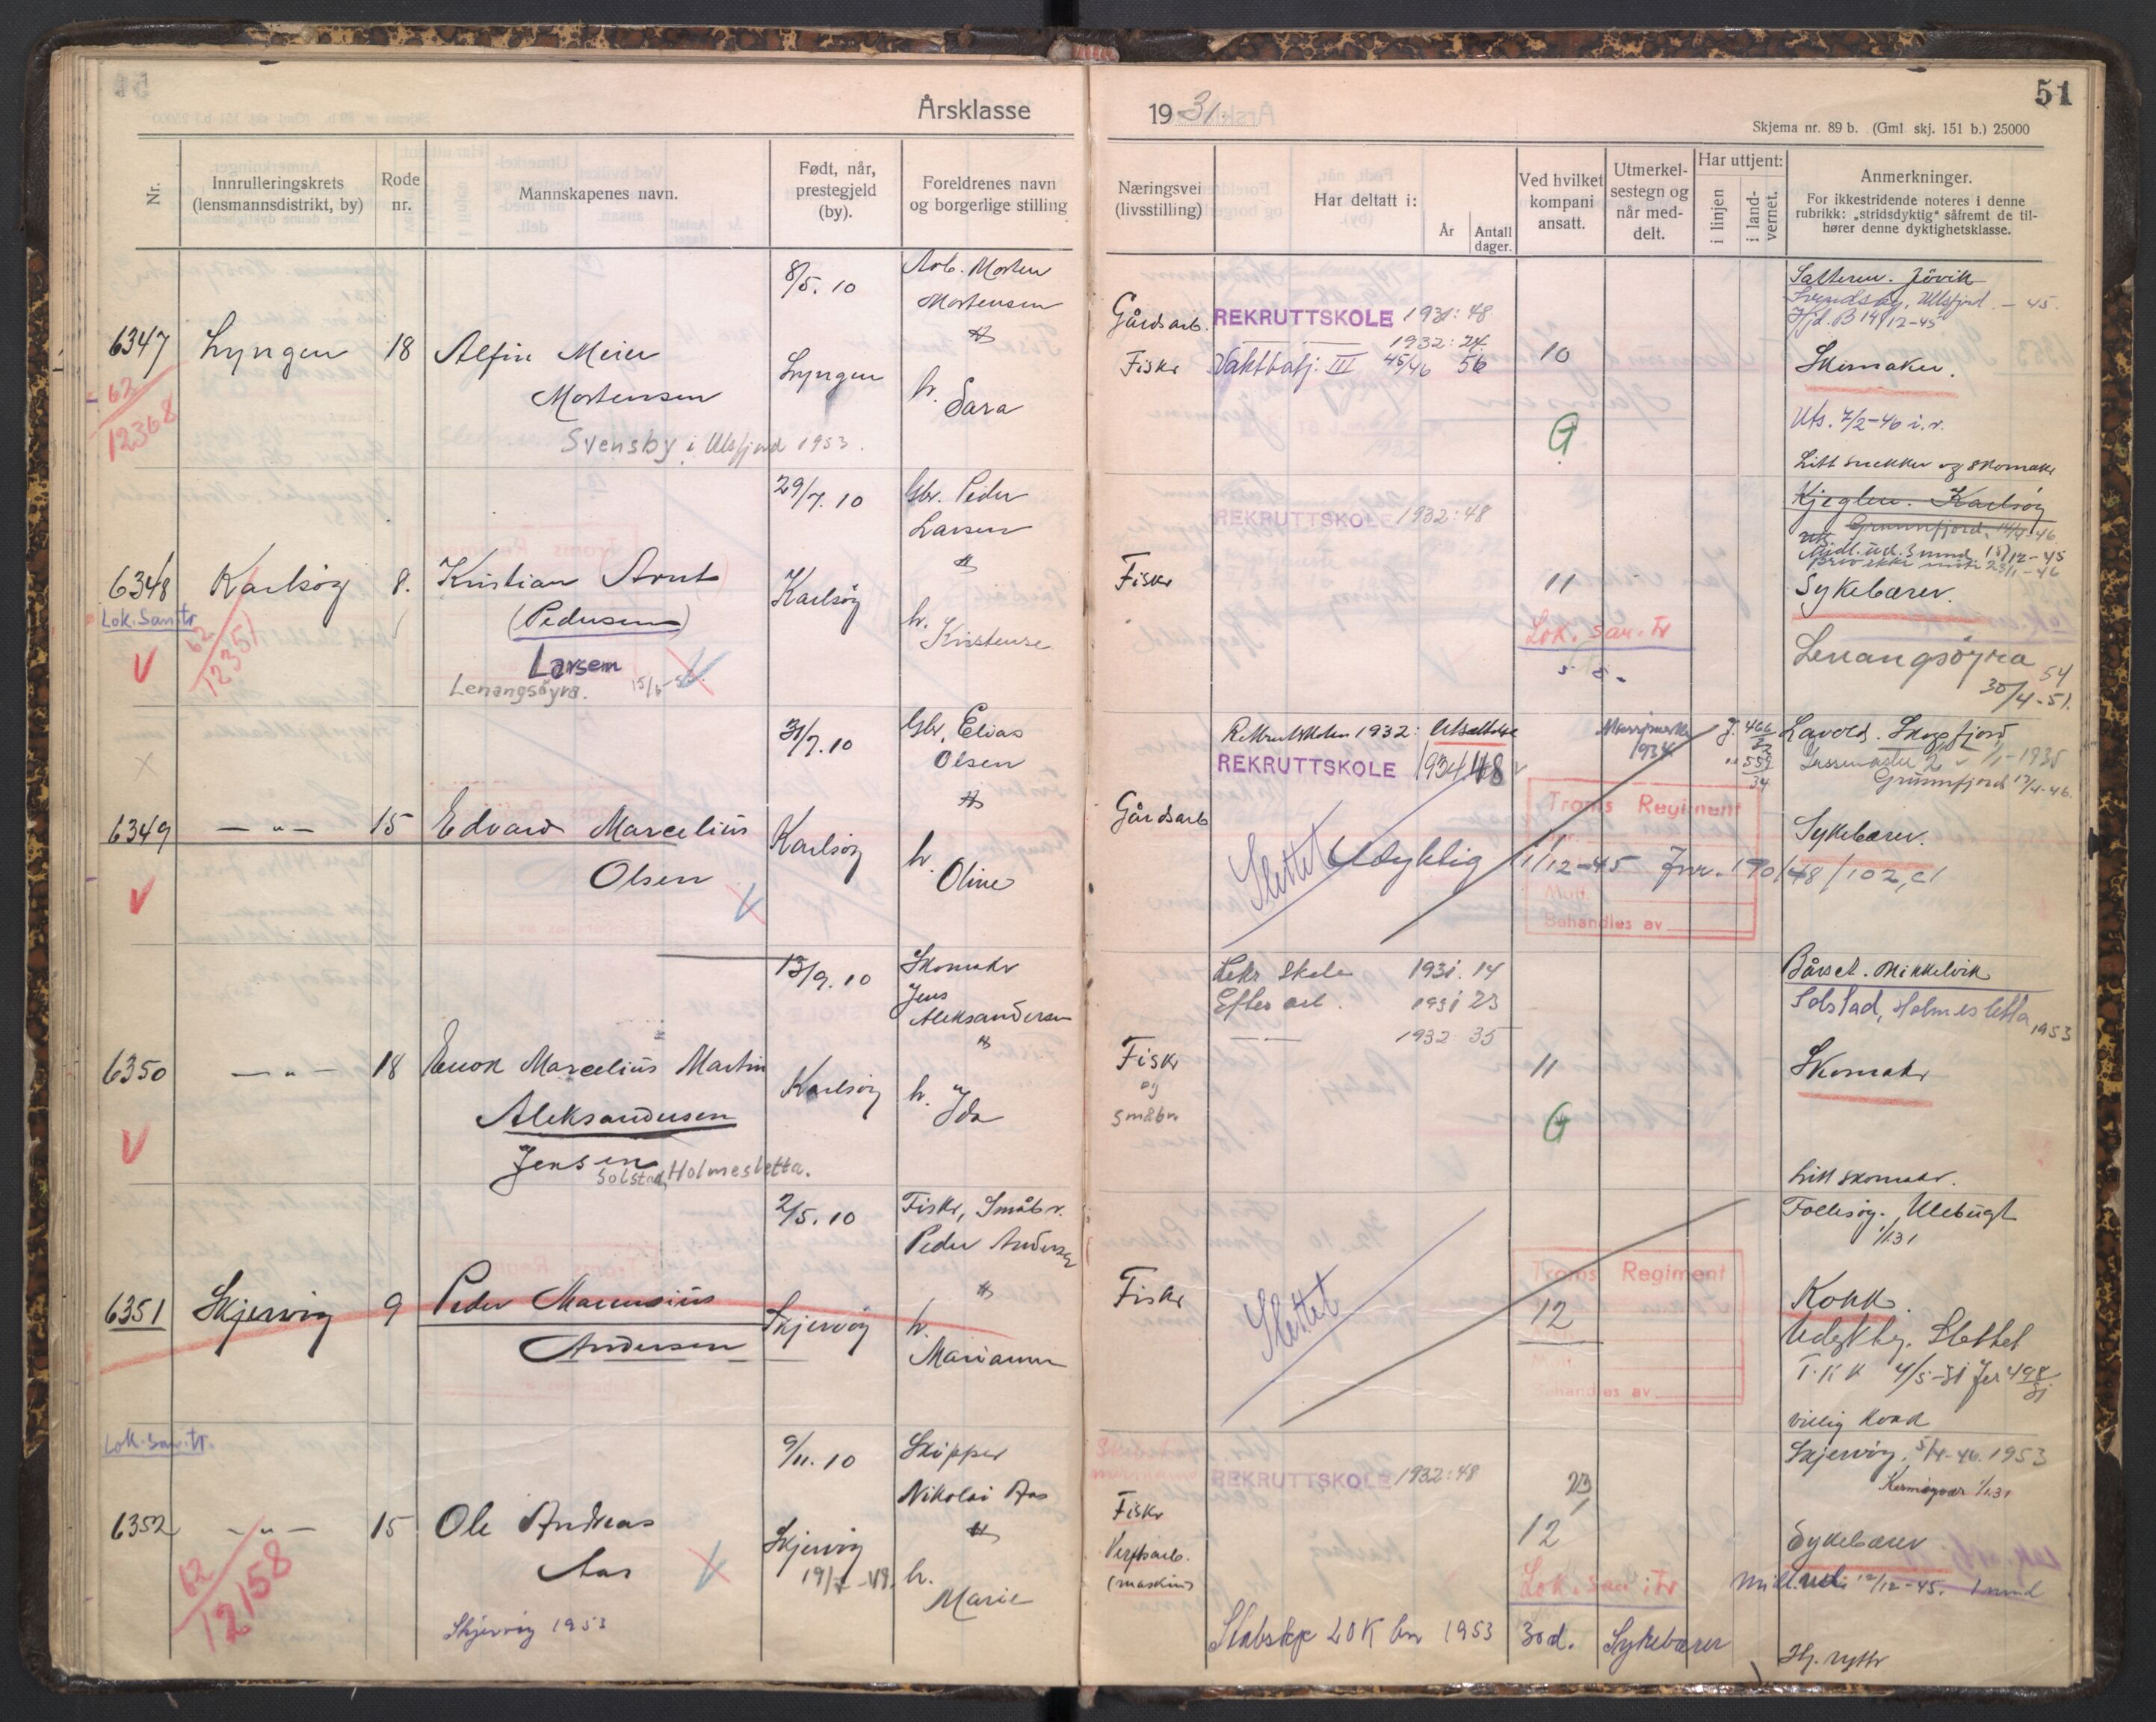 51
Årsklasse
1931.
Skjema nr. 89 b. (Gml. skj. 151 b.) 25000
Nr.
Innrulleringskrets
(lensmannsdistrikt, by)
Rode
nr.
Mannskapenes navn.
Født, når,
prestegjeld
(by).
Foreldrenes navn
og borgerlige stilling
Næringsvei
(livsstilling)
Har deltatt i:
År
Antall
dager.
Ved hvilket
kompani
ansatt.
Utmerkel-
sestegn og
når med-
delt.
Har uttjent:
i linjen
i land-
vernet.
Anmerkninger.
For ikkestridende noteres i denne
rubrikk: „stridsdyktig“ såfremt de til-
hører denne dyktighetsklasse.
6347
62
12368
Lyngen
18
Alfin Meier
Mortensen
Svensby i Ulsfjord 1953.
8/5. 10
Lyngen
Arb. Morten
Mortensen
h.
Sara
Gårdsarb.
Fisker
REKRUTTSKOLE 1931: 48
1932: 24
Vaktbatj. III 45/46 56
10
G
Jövik
Svendsby, Ullsfjord - 45.
Hjd. B 14/12-45
Skomaker.
Uts. 7/2-46 i.r.
Litt snekker og skomaker
6348
Lok.San.tr
V
62
12351
Karlsøy
8.
Kristian Arnt
(Pedersen)
Larsen
Lenangsöyra.
29/7. 10
Karlsøy
Gbr. Peder
Larsen
h.
Kristense
Fisker
REKRUTTSKOLE 1932: 48
11
Lok. san. tr
Kjeglen. Karlsøy
Grunnfjord, 14/4-46.
Midl. ud. 3 mnd 15/12-45
Sykebærer.
Lenangsöyra
54
30/4-51.
6349
V
— " —
15
Edvard Marcelius
Olsen
31/7. 10
Karlsøy
Gbr. Elias
Olsen
h.
Oline
Gårdsarb
Rekruttskolen 1932: Utsettelse
REKRUTTSKOLE 1934 48
Slettet
Udyktig 1/12-45 Jnr. 170/48/102, cl
1934
J. 466
32
" 559
34
Troms Regiment
Mott.
Behandles av
Skogsfjord
1/1-1935
Grunnfjord 13/4-46.
Sykebærer.
6350
V
— " —
18
Enok Marcelius Martin
Aleksandersen
Jensen
Solstad, Holmesletta.
13/9. 10
Karlsøy
Skomaker
Jens
Aleksandersen
h.
Ida
Fisker
og
småbr.
Rekr. Skole 1931. 14
Efter arb. 1931 23
— — 1932 35
11
G
Bårset. Mikkelvik
Solstad, Holmesletta
1953
Skomaker
Litt skomaker.
6351
Skjervøy
9
Peder Marensius
Andersen
2/5. 10
Skjervøy
Fisker, Småbr.
Peder Andersen
h.
Marianne
Fisker
Slettet
12
Troms Regiment
Mott.
Behandles av
Follesøy. Ulebugt
1/1 31
Kokk.
Udyktig. Slettet
T.K.K 4/5-31 Jnr 498/31
Villig kokk
Lok. San. tr.
6352
62
12158
— " —
15
Ole Andreas
Aas
Skjervøy 1953
9/11. 10
Skjervøy
Skipper
Nikolai Aas
h.
Marie
Fisker
Verftsarb.
(maskin)
REKRUTTSKOLE 1932: 48
12
Lok. san. tr
Stabskp LOK bn 1953
30d.
Sykebærer
Skjervøy. 5/4-46. 1953
1/1 31
Sykebærer
Midl. ud. 12/12-45. 1 mnd
Hj. rytter